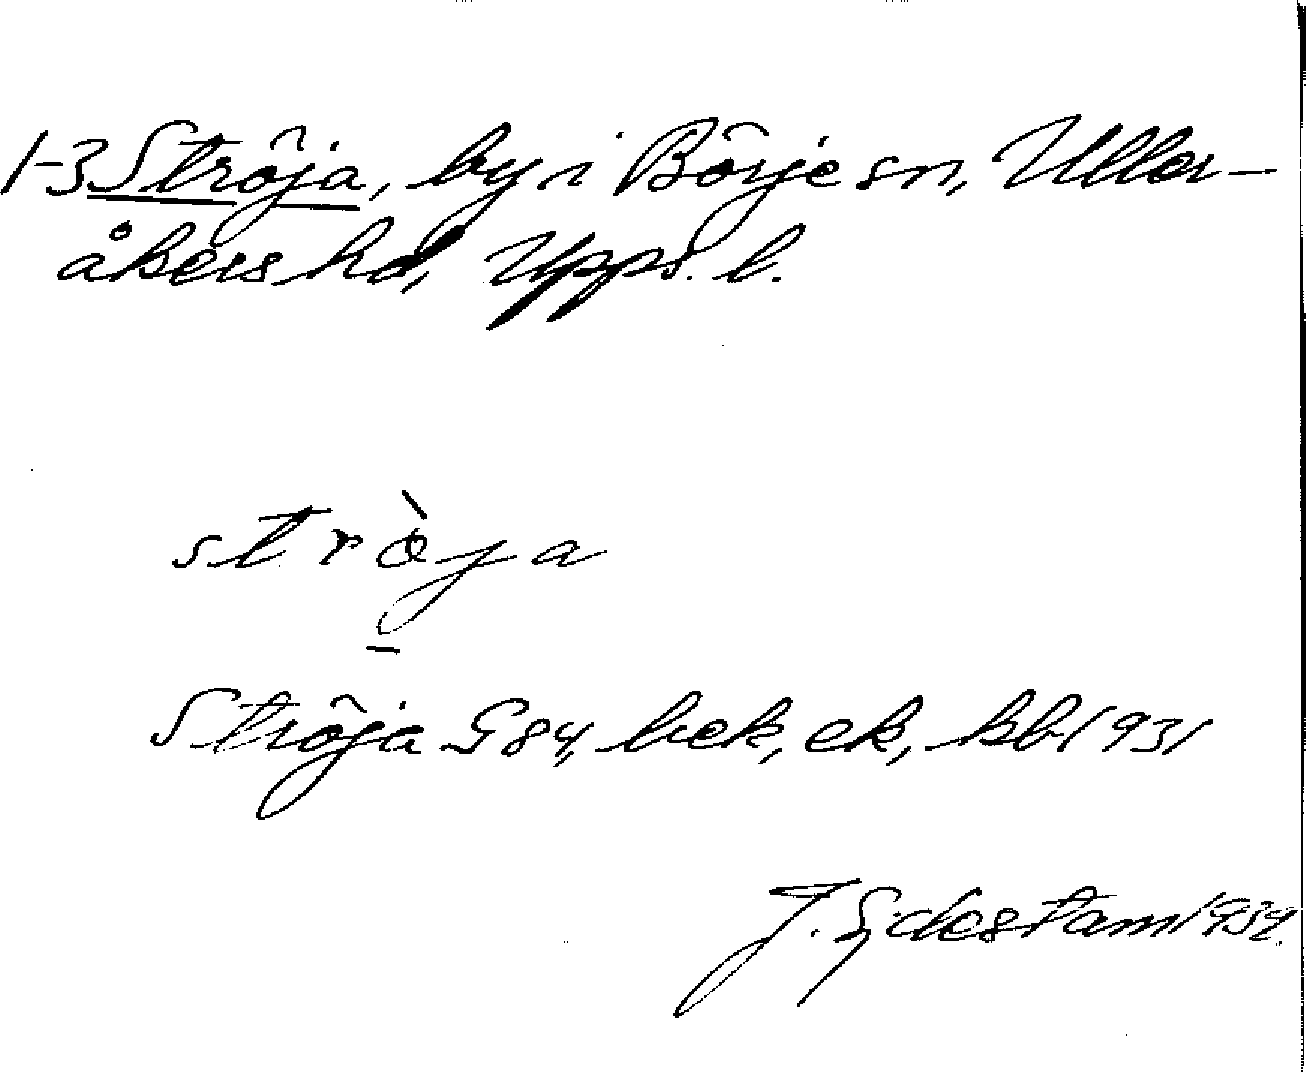 1-3 Ströja, by i Börje sn, Uller-
åkers hd, Upps. l.
strö̀ja
Ströja G84, bek, ek, kb 1931
J. Edestam 1934.